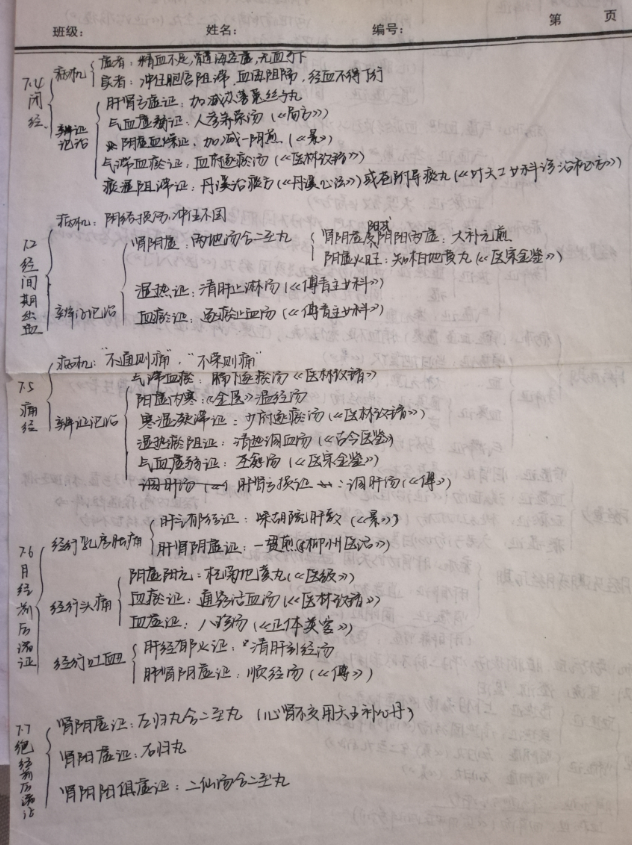 第 页
班级: 姓名: 编号:
7.4 闭经
病机
虚者:精血不足,血海空虚,无血可下
实者:冲任胞宫阻滞,血海阻隔,经血不得下行
辨证论治
肝肾亏虚证:加减苁蓉菟丝子丸
气血虚弱证:人参养荣汤(《局方》)
阴虚血燥证:加减一阴煎(《景》)
气滞血瘀证:血府逐瘀汤(《医林改错》)
痰湿阻滞证:丹溪治痰方(《丹溪心法》)或苍附导痰丸(《叶天士女科诊治秘方》)
7.2 经间期出血
病机:阴络损伤,冲任不固
辨证论治
肾阴虚:两地汤合二至丸
阴阳两虚:大补元煎
阴虚火旺:知柏地黄丸(《医宗金鉴》)
湿热证:清肝止淋汤(《傅青主女科》)
血瘀证:逐瘀止血汤(《傅青主女科》)
7.5 痛经
病机:"不通则痛","不荣则痛"
辨证论治
气滞血瘀:膈下逐瘀汤《医林改错》
阳虚内寒:《金匮》温经汤
寒湿凝滞证:少府逐瘀汤(《医林改错》)
湿热瘀阻证:清热调血汤(《古今医鉴》)
气血虚弱证:圣愈汤(《医宗金鉴》)
调肝汤 肝肾亏损证:调肝汤(《傅》)
7.6 月经前后诸证
经行乳房胀痛
肝气郁结证:柴胡疏肝散(《景》)
肝肾阴虚证:一贯煎《柳州医话》)
经行头痛
阴虚阳亢:杞菊地黄丸(《医级》)
血瘀证:通窍活血汤(《医林改错》)
血虚证:八珍汤(《正体类要》)
经行吐血
肝经郁火证:清肝引经汤
肝肾阴虚证:顺经汤(《傅》)
7.7 绝经前后诸证
肾阴虚证:左归丸合二至丸(心肾不交用天王补心丹)
肾阳虚证:右归丸
肾阴阳俱虚证:二仙汤合二至丸